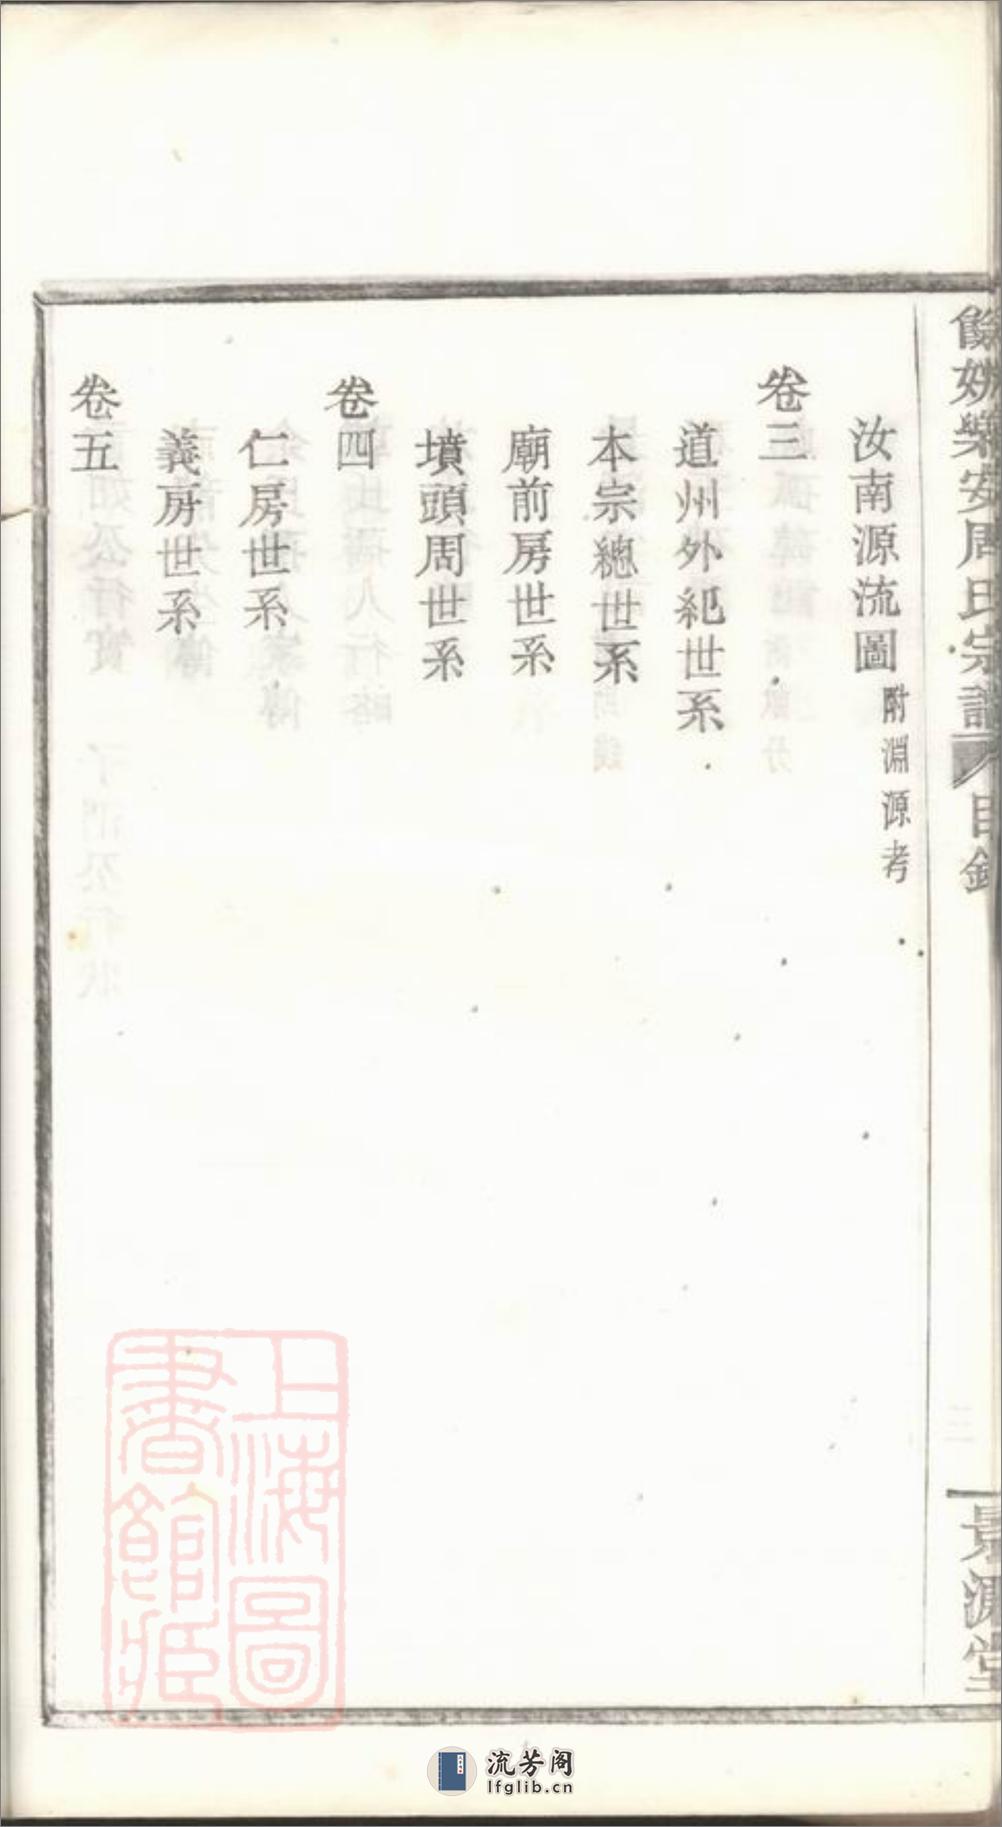 餘姚樂安周氏宗譜 目錄 三 景源堂
汝南源流圖 附淵源考
卷三
道州外紀世系
本宗總世系
廟前房世系
墳頭周世系
卷四
仁房世系
義房世系
卷五
上海圖書館藏
流芳阁
lfglib.cn